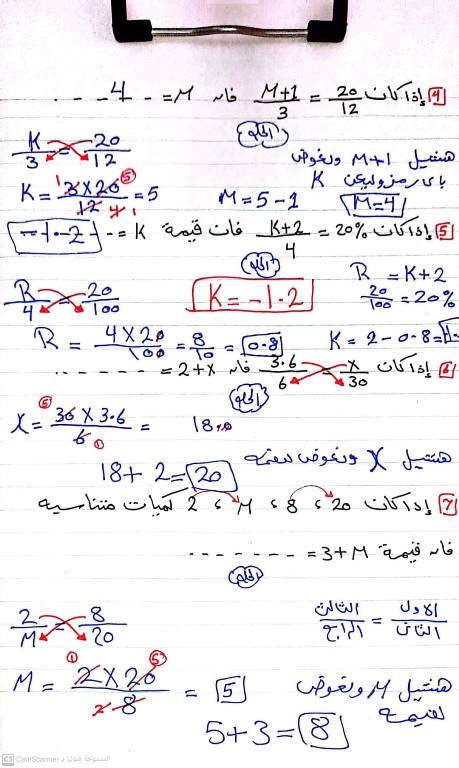 4 إذا كان M+1/3 = 20/12 فإن M = --4--
الحل
K/3 = 20/12
هنشيل M+1 ونعوض
بأى رمز وليكن K
K = 3×20/12 = 5
M = 5 - 1
M = 4
5 إذا كان K+2/4 = 20% فإن قيمة K = -1.2
الحل
R = K+2
20/100 = 20%
R/4 = 20/100
K = -1.2
R = 4×20/100 = 8/10 = 0.8
K = 2 - 0.8 =
6 إذا كان 3.6/6 = X/30 فإن X+2 = ------
الحل
X = 30×3.6/6 = 18.0
هنشيل X ونعوض بقيمته
18 + 2 = 20
7 إذا كان 20 ، 8 ، M ، 2 كميات متناسبه
فإن قيمة M+3 = -------
الحل
الاول/الثانى = الثالث/الرابع
2/M = 8/20
M = 2×20/8 = 5
هنشيل M ونعوض
بقيمته
5 + 3 = 8
CS الممسوحة ضوئيا بـ CamScanner